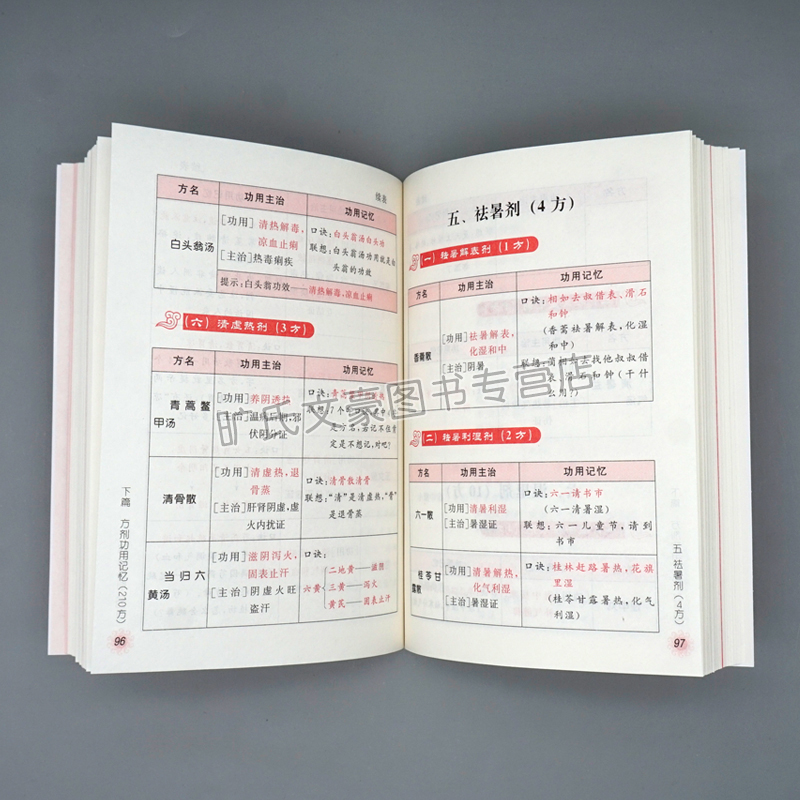 续表
方名 功用主治 功用记忆
白头翁汤
[功用]清热解毒,
凉血止痢
[主治]热毒痢疾
口诀:白头翁汤白头功
联想:白头翁汤功用就是白
头翁的功效
提示:白头翁功效——清热解毒,凉血止痢
(六)清虚热剂(3方)
方名 功用主治 功用记忆
青蒿鳖
甲汤
[功用]养阴透热
[主治]温病后期,邪
伏阴分证
定是不想记,对吧
清骨散
[功用]清虚热,退
骨蒸
[主治]肝肾阴虚,虚
火内扰证
口诀:清骨散清骨
联想:“清”是清虚热,“骨”
是退骨蒸
当归六
黄汤
[功用]滋阴泻火,
固表止汗
[主治]阴虚火旺
盗汗
口诀:
六黄
二地黄——滋阴
三黄——泻火
黄芪——固表止汗
下篇 方剂功用记忆(210方)
96
五、祛暑剂(4方)
(一)祛暑解表剂(1方)
方名 功用主治 功用记忆
香薷散
[功用]祛暑解表,
化湿和中
[主治]阴暑
口诀:相如去叔借表、滑石
和钟
(香薷祛暑解表,化湿
和中)
联想:蔺相如去找他叔叔借
表、滑石和钟(干什
么用?)
(二)祛暑利湿剂(2方)
方名 功用主治 功用记忆
六一散
[功用]清暑利湿
[主治]暑湿证
口诀:六一请书市
(六一清暑湿)
联想:六一儿童节,请到
书市
桂苓甘
露散
[功用]清暑解热,
化气利湿
[主治]暑湿证
口诀:桂林赶路暑热,花旗
里湿
(桂苓甘露暑热,化气
利湿)
五 祛暑剂(4方)
97
旷氏文豪图书专营店